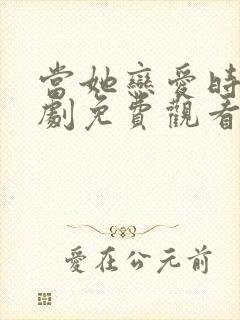 當她戀愛時
劇免費觀看
愛在公元前